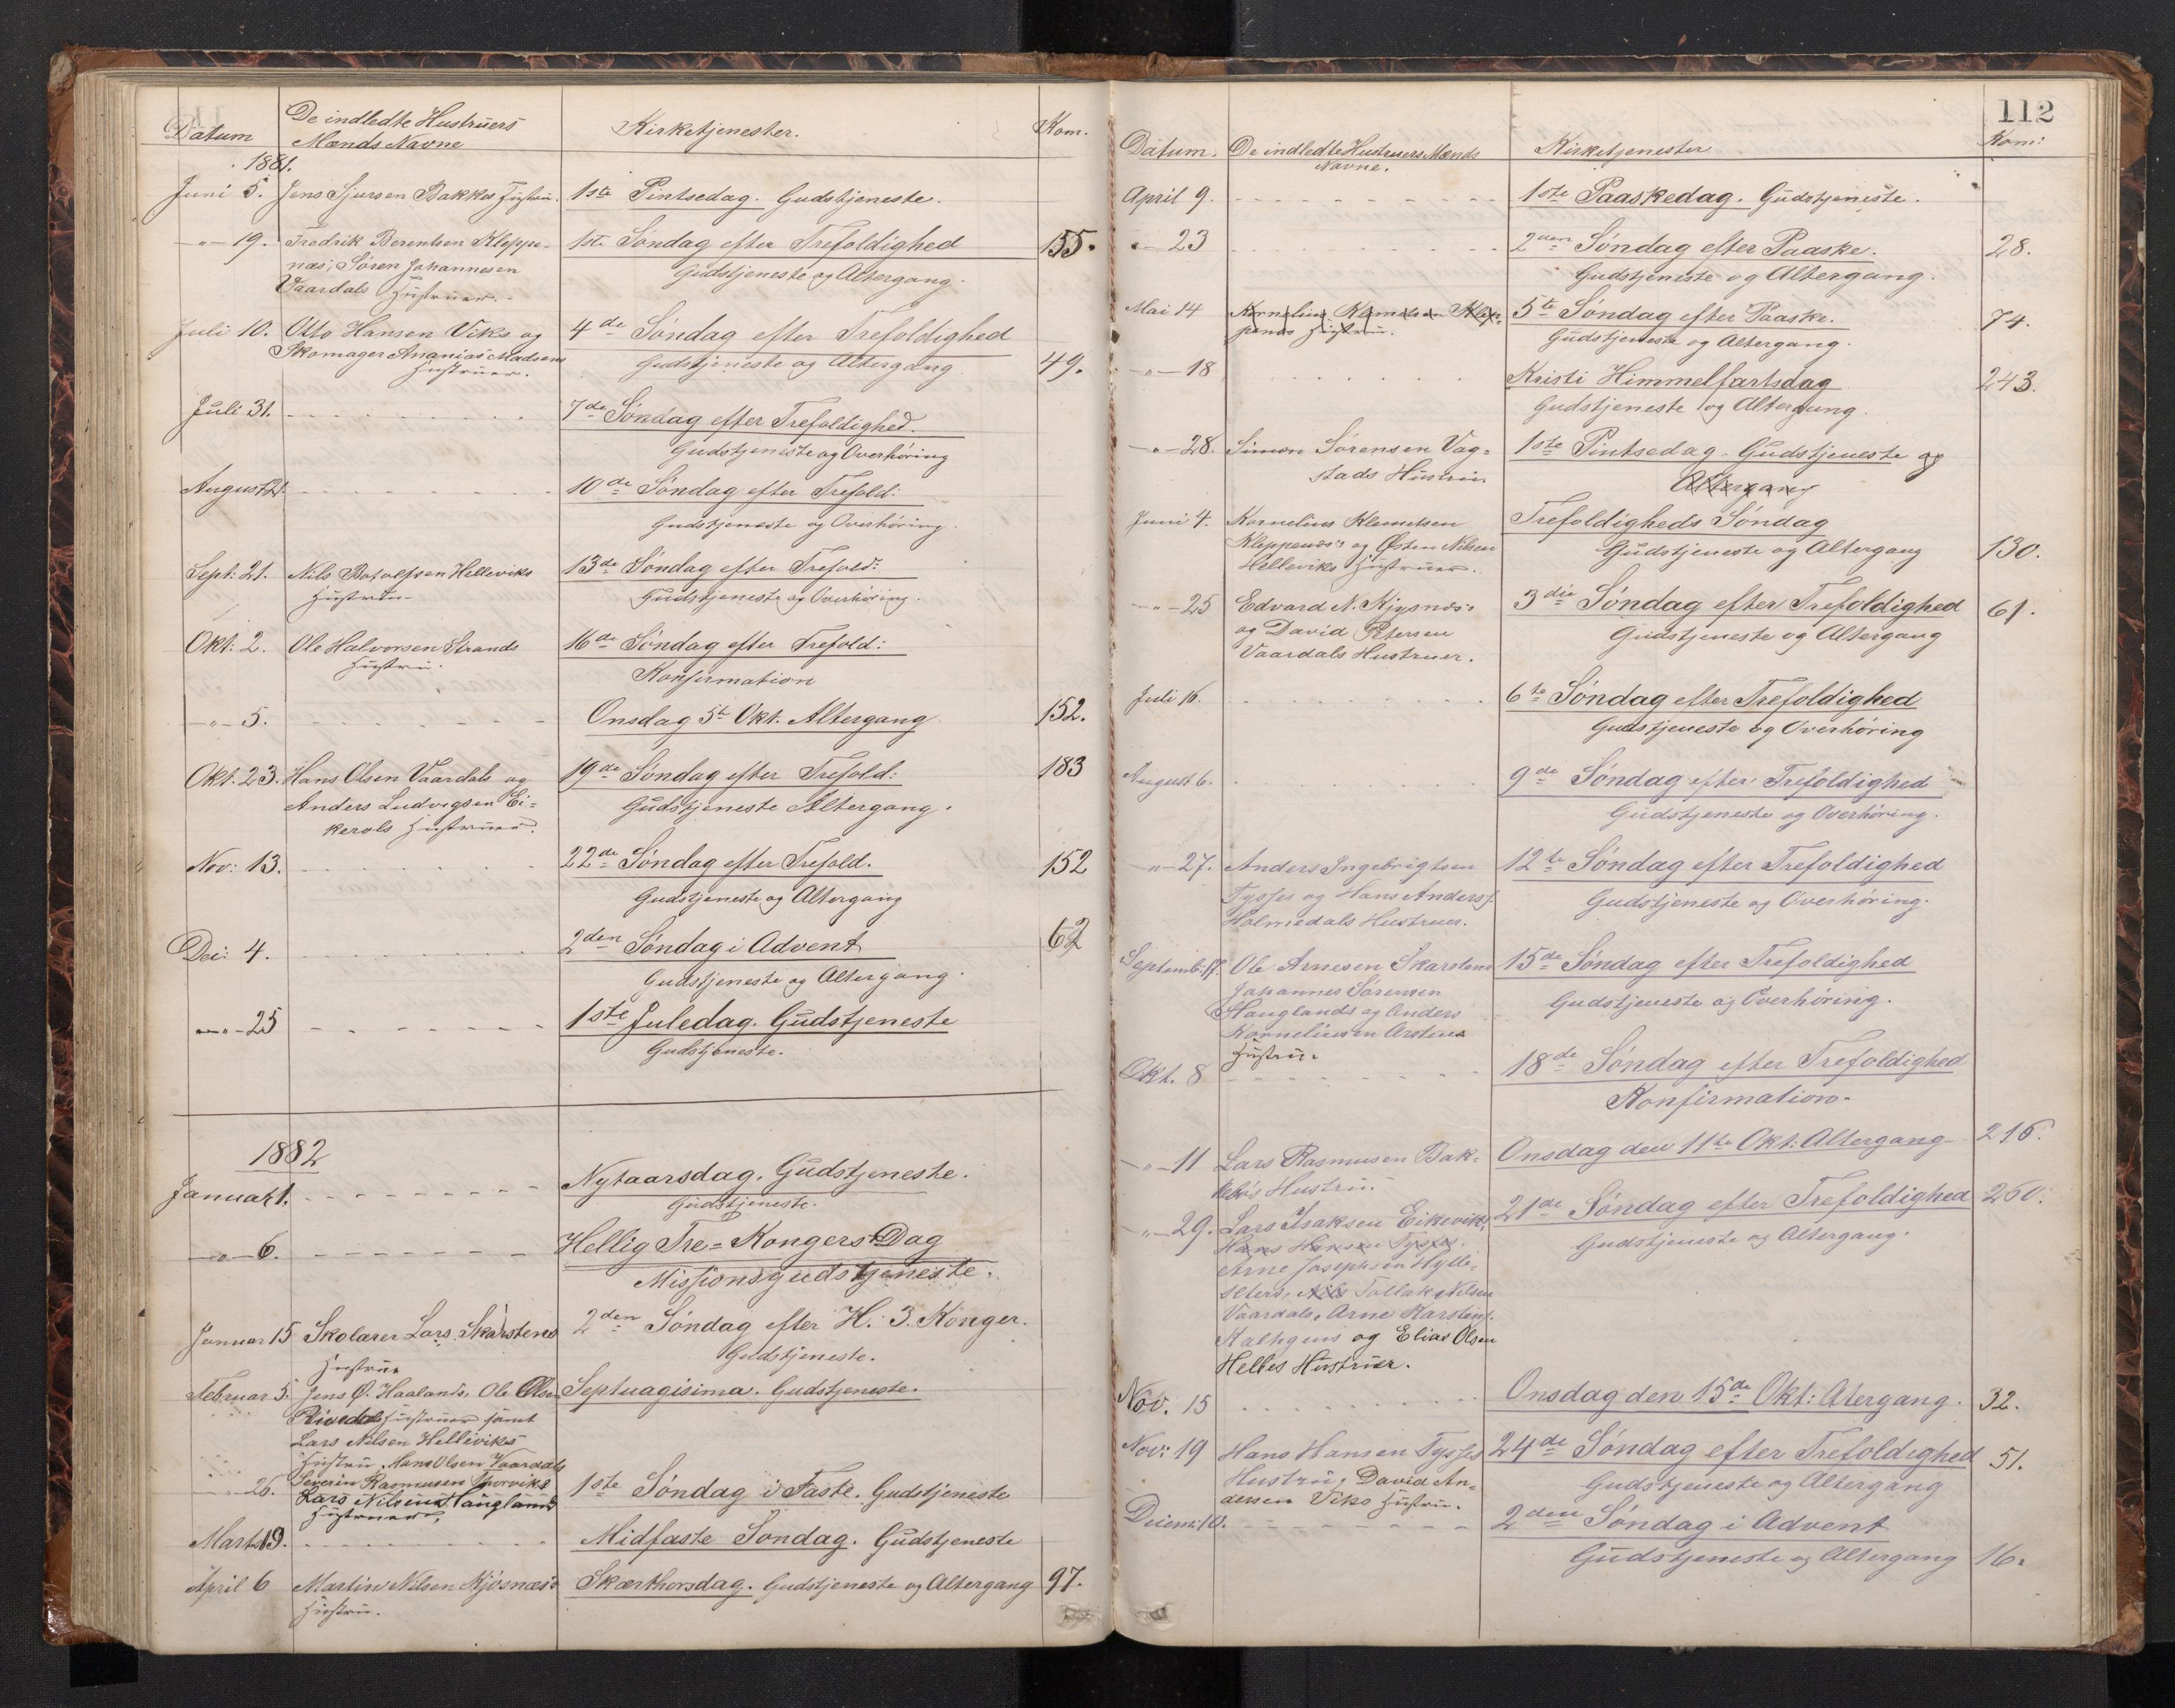 Datum
De indledte Hustruers
Mænds Navne
Kirketjenester.
Kom.
1881.
Juni 5. Jens Sjursen Bakkes Hustru. 1ste Pintsedag. Gudstjeneste.
-"- 19. Fredrik Berentsen Kleppe- 1ste Søndag efter Trefoldighed 155.
næs, Søren Johannesen Gudstjeneste og Altergang.
Vaardals Hustruer.
Juli 10. Otto Hansen Viks og 4de Søndag efter Trefoldighed
Skomager Ananias Madsens Gudstjeneste og Altergang 49.
Hustruer.
Juli 31. 7de Søndag efter Trefoldighed.
Gudstjeneste og Overhøring
August 21. 10de Søndag efter Trefold:
Gudstjeneste og Overhøring.
Sept: 21. Nils Botolfsen Helleviks 13de Søndag efter Trefold:
Hustru Gudstjeneste og Overhøring.
Okt: 2. Ole Halvorsen Strands 16de Søndag efter Trefold:
Hustru. Konfirmation
-"- 5. Onsdag 5te Okt. Altergang 152.
Okt. 23. Hans Olsen Vaardals og 19de Søndag efter Trefold: 183
Anders Ludvigsen Ei= Gudstjeneste Altergang.
kerols Hustruer.
Nov: 13. 22de Søndag efter Trefold. 152
Gudstjeneste og Altergang
Dec: 4. 2den Søndag i Advent 62
Gudstjeneste og Altergang.
-"- 25 1ste Juledag. Gudstjeneste
Gudstjeneste.
1882
Januar 1. Nytaarsdag. Gudstjeneste.
Gudstjeneste.
-"- 6. Hellig Tre=Kongers Dag
Missionsgudstjeneste.
Januar 15 Skolærer Lars Skarstens 2den Søndag efter H. 3. Konger.
Hustru Gudstjeneste.
Februar 5. Jens Ø. Haalands, Ole Olsen Septuagisima. Gudstjeneste.
Rivedals Hustruer samt
Lars Nilsen Helleviks
Hustru, Hans Olsen Vaardals
-"- 26. Severin Rasmusen 1ste Søndag i Faste. Gudstjeneste
Lars Nilsen Hauglands
Hustruer.
Marts 19. Midfaste Søndag. Gudstjeneste
April 6 Martin Nilsen Kjøsnæs's Skærthorsdag. Gudstjeneste og Altergang 97.
Hustru.
112
Datum. De indledte Hustruers Mænds Kirketjenester Kom:
Navne.
April 9. 1ste Paaskedag. Gudstjeneste.
-"- 23 2den Søndag efter Paaske. 28.
Gudstjeneste og Altergang.
Mai 14 Kornelius Klemetsen Klep= 5te Søndag efter Paaske. 74.
penæs Hustru. Gudstjeneste og Altergang.
-"- 18 Kristi Himmelfartsdag 243.
Gudstjeneste og Altergang.
-"- 28. Simon Sørensen Vag= 1ste Pintsedag. Gudstjeneste og
stads Hustru Altergang
Juni 4. Kornelius Klemetsen Trefoldigheds Søndag
Kleppenæs's og Østen Nilsen Gudstjeneste og Altergang 130.
Helleviks Hustruer.
-"- 25 Edvard N. Kjøsnæs's 3die Søndag efter Trefoldighed 61.
og David Petersen Gudstjeneste og Altergang
Vaardals Hustruer.
Juli 16. 6te Søndag efter Trefoldighed
Gudstjeneste og Overhøring
August 6. 9de Søndag efter Trefoldighed
Gudstjeneste og Overhøring.
-"- 27. Anders Ingebrigtsen 12te Søndag efter Trefoldighed
Tysses og Hans Anders. Gudstjeneste og Overhøring.
Holmedals Hustruer.
Septemb: 17. Ole Arnesen Skarstens 15de Søndag efter Trefoldighed
Johannes Sørensen Gudstjeneste og Overhøring.
Hauglands og Anders
Kornelíusen
Hustru.
Okt. 8 18de Søndag efter Trefoldighed
Konfirmation.
-"- 11 Lars Rasmusen Bak= Onsdag den 11te Okt: Altergang 216.
Hustru.
-"- 29. Lars Isaksen Eikeviks, 21de Søndag efter Trefoldighed 260.
Hans Hansen Tysses. Gudstjeneste og Altergang.
Arne Josephsen Hylle=
seters, Nils Tollak Nilsen
Vaardals, Arne Karstens.
og Elias Olsen
Helles Hustruer.
Nov. 15 Onsdag den 15de Okt: Atergang. 32.
Nov: 19 Hans Hansen Tysses 24de Søndag efter Trefoldighed 51.
Hustru, David An= Gudstjeneste og Altergang
dersen Viks Hustru.
Decem: 10. 2den Søndag i Advent
Gudstjeneste og Altergang 16.